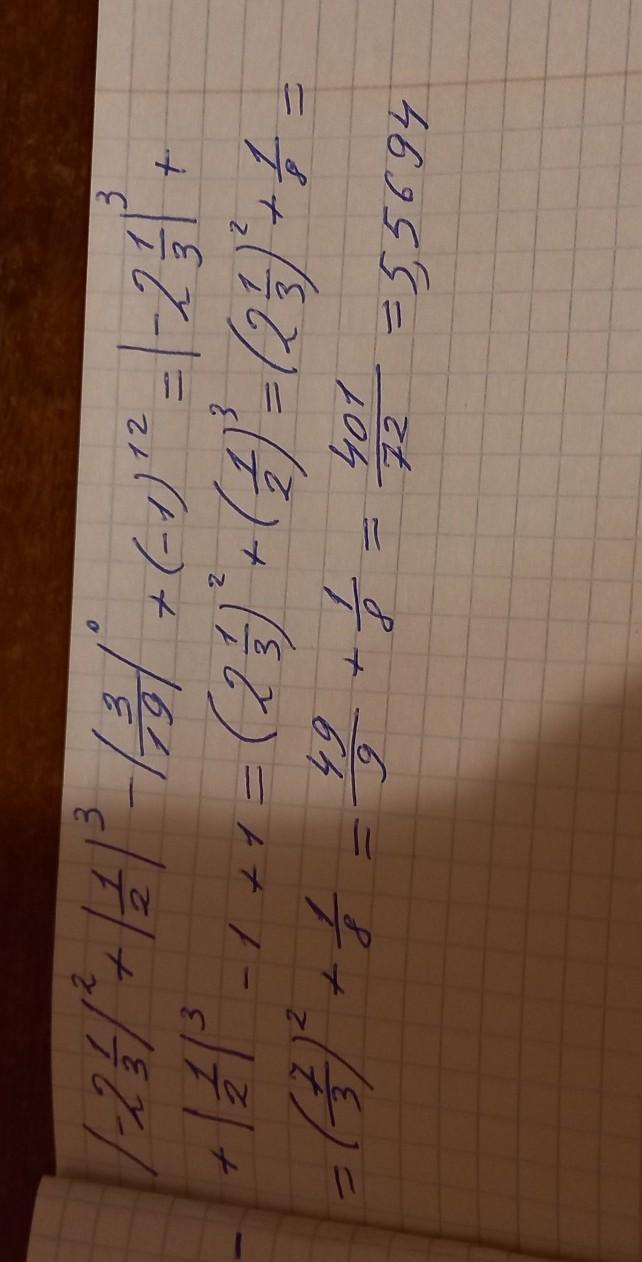 |-2 1/3|² + |1/2|³ - (3/19)⁰ + (-1)¹² = |-2 1/3|³ +
+ |1/2|³ - 1 + 1 = (2 1/3)² + (1/2)³ = (2 1/3)² + 1/8 =
= (7/3)² + 1/8 = 49/9 + 1/8 = 401/72 = 5,5694